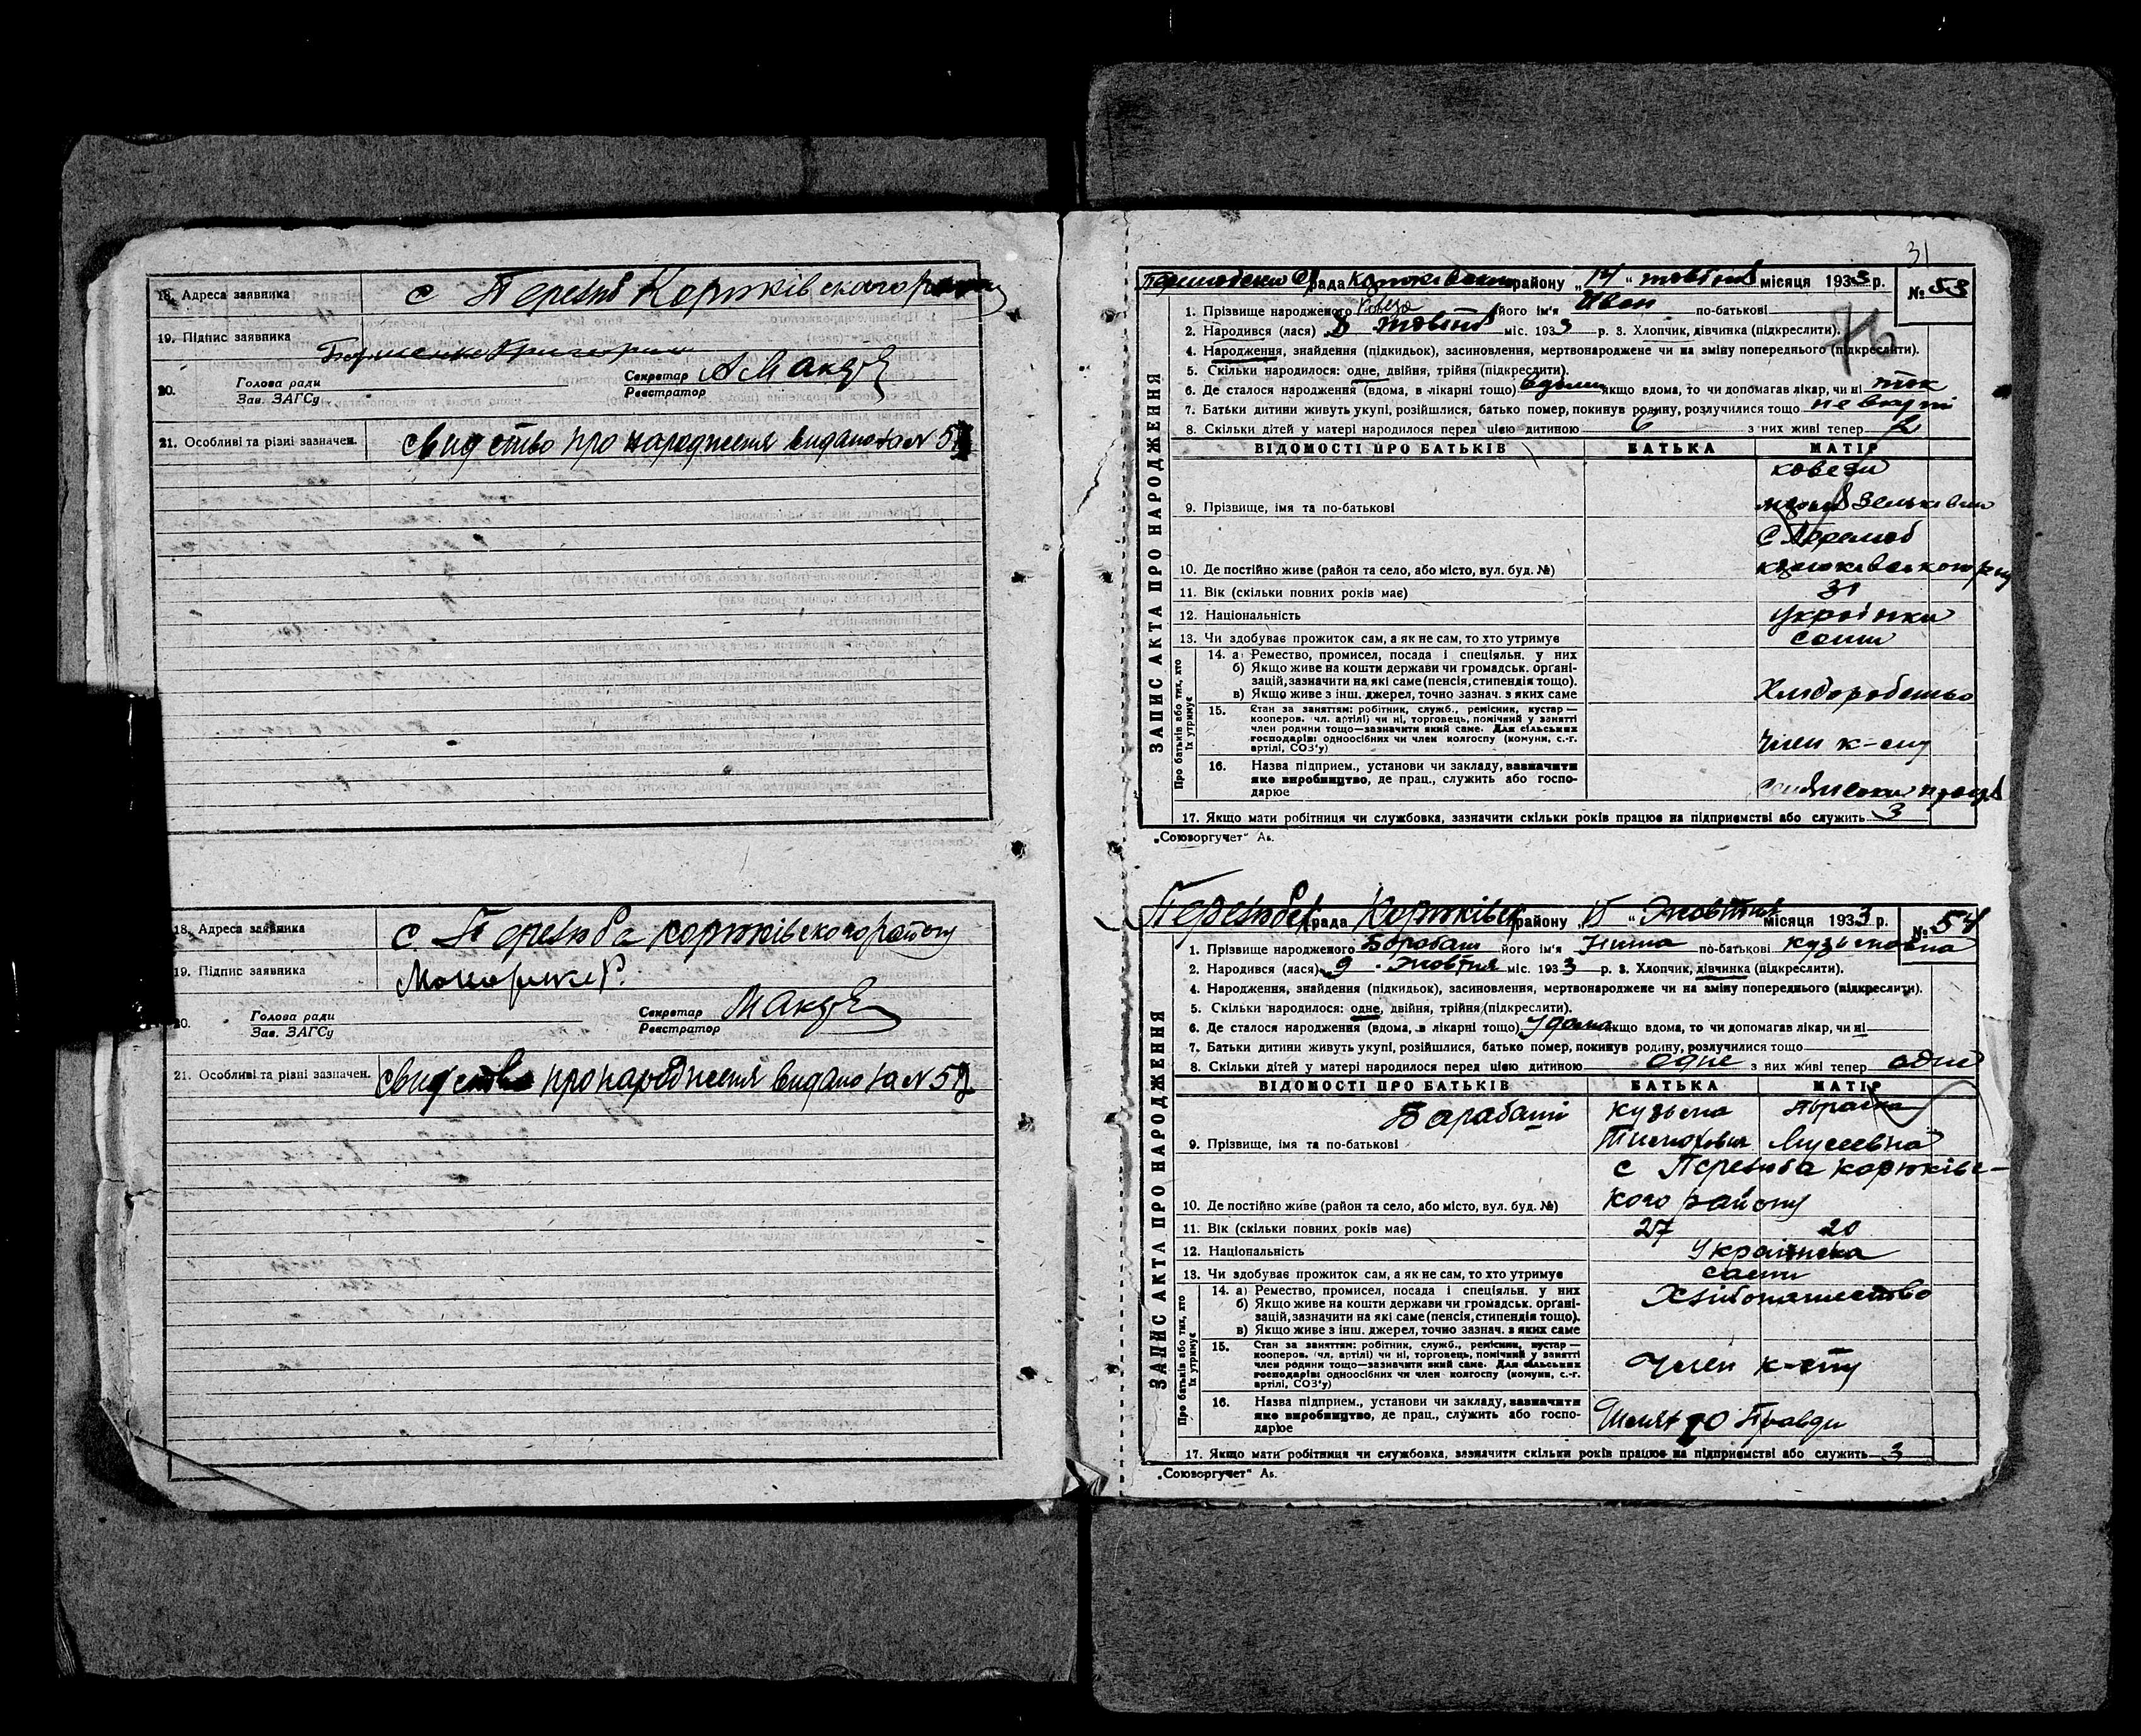 18. Адреса заявника с Перелюб Корюківського району
19. Підпис заявника
20. Голова ради Секретар АМакуЄ
Зав. ЗАГСу Реєстратор
21. Особливі та різні зазначен. свидство про народження видано за №
18. Адреса заявника с. Перелюба корюківського району
19. Підпис заявника
20. Голова ради Секретар
Зав. ЗАГСу Реєстратор
21. Особливі та різні зазначен. свидство про народження видано за № 52
31
рада району „14“ жовтня місяця 1933 р. № 53
76
ЗАПИС АКТА ПРО НАРОДЖЕННЯ
1. Прізвище народженого його ім'я Иван по-батькові
2. Народився (лася) 8 жовтня міс. 1933 р. 3. Хлопчик, дівчинка (підкреслити).
4. Народження, знайдення (підкидьок), засиновлення, мертвонароджене чи на зміну попереднього (підкреслити).
5. Скільки народилося: одне, двійня, трійня (підкреслити).
6. Де сталося народження (вдома, в лікарні тощо) вдома якщо вдома, то чи допомагав лікар, чи ні
7. Батьки дитини живуть укупі, розійшлися, батько помер, покинув родину, розлучилися тощо
8. Скільки дітей у матері народилося перед цією дитиною 6 з них живі тепер 2
ВІДОМОСТІ ПРО БАТЬКІВ БАТЬКА МАТІР
9. Прізвище, імя та по-батькові
с Перелюб
10. Де постійно живе (район та село, або місто, вул. буд. №)
11. Вік (скільки повних років має) 31
12. Національність українка
13. Чи здобуває прожиток сам, а як не сам, то хто утримує сами
Про батьків або тих, хто їх утримує
14. а) Ремество, промисел, посада і спеціяльн. у них
б) Якщо живе на кошти держави чи громадськ. організацій, зазначити на які саме (пенсія, стипендія тощо).
в) Якщо живе з інш. джерел, точно зазнач. з яких саме
15. Стан за заняттям: робітник, служб., ремісник, кустар—
кооперов. (чл. артілі) чи ні, торговець, помічний у занятті
член родини тощо—зазначити який саме. Для сільських
господарів: одноосібних чи член колгоспу (комуни, с.-г.
артілі, СОЗ'у) член к-спу
16. Назва підприєм., установи чи закладу, зазначити
яке виробництво, де прац., служить або господарює
17. Якщо мати робітниця чи службовка, зазначити скільки років працює на підприємстві або служить 3
„Союзоргучет“ Ак.
рада Корюківськ району „15“ жовтня місяця 1933 р. № 54
ЗАПИС АКТА ПРО НАРОДЖЕННЯ
1. Прізвище народженого Барабаш його ім'я Нина по-батькові Кузьмовна
2. Народився (лася) 9 жовтня міс. 1933 р. 3. Хлопчик, дівчинка (підкреслити).
4. Народження, знайдення (підкидьок), засиновлення, мертвонароджене чи на зміну попереднього (підкреслити).
5. Скільки народилося: одне, двійня, трійня (підкреслити).
6. Де сталося народження (вдома, в лікарні тощо) удома якщо вдома, то чи допомагав лікар, чи ні
7. Батьки дитини живуть укупі, розійшлися, батько помер, покинув родину, розлучилися тощо
8. Скільки дітей у матері народилося перед цією дитиною одне з них живі тепер одне
ВІДОМОСТІ ПРО БАТЬКІВ БАТЬКА МАТІР
Барабаш Кузьма
9. Прізвище, імя та по-батькові Мусеевна
с Перелюба корюківс-
10. Де постійно живе (район та село, або місто, вул. буд. №) кого району
11. Вік (скільки повних років має) 27 20
12. Національність Українска
13. Чи здобуває прожиток сам, а як не сам, то хто утримує сами
Про батьків або тих, хто їх утримує
14. а) Ремество, промисел, посада і спеціяльн. у них Хлібопашество
б) Якщо живе на кошти держави чи громадськ. організацій, зазначити на які саме (пенсія, стипендія тощо).
в) Якщо живе з інш. джерел, точно зазнач. з яких саме
15. Стан за заняттям: робітник, служб., ремісник, кустар—
кооперов. (чл. артілі) чи ні, торговець, помічний у занятті
член родини тощо—зазначити який саме. Для сільських
господарів: одноосібних чи член колгоспу (комуни, с.-г.
артілі, СОЗ'у) член к-спу
16. Назва підприєм., установи чи закладу, зазначити
яке виробництво, де прац., служить або господарює Шляхдо Правди
17. Якщо мати робітниця чи службовка, зазначити скільки років працює на підприємстві або служить 3
„Союзоргучет“ Ак.